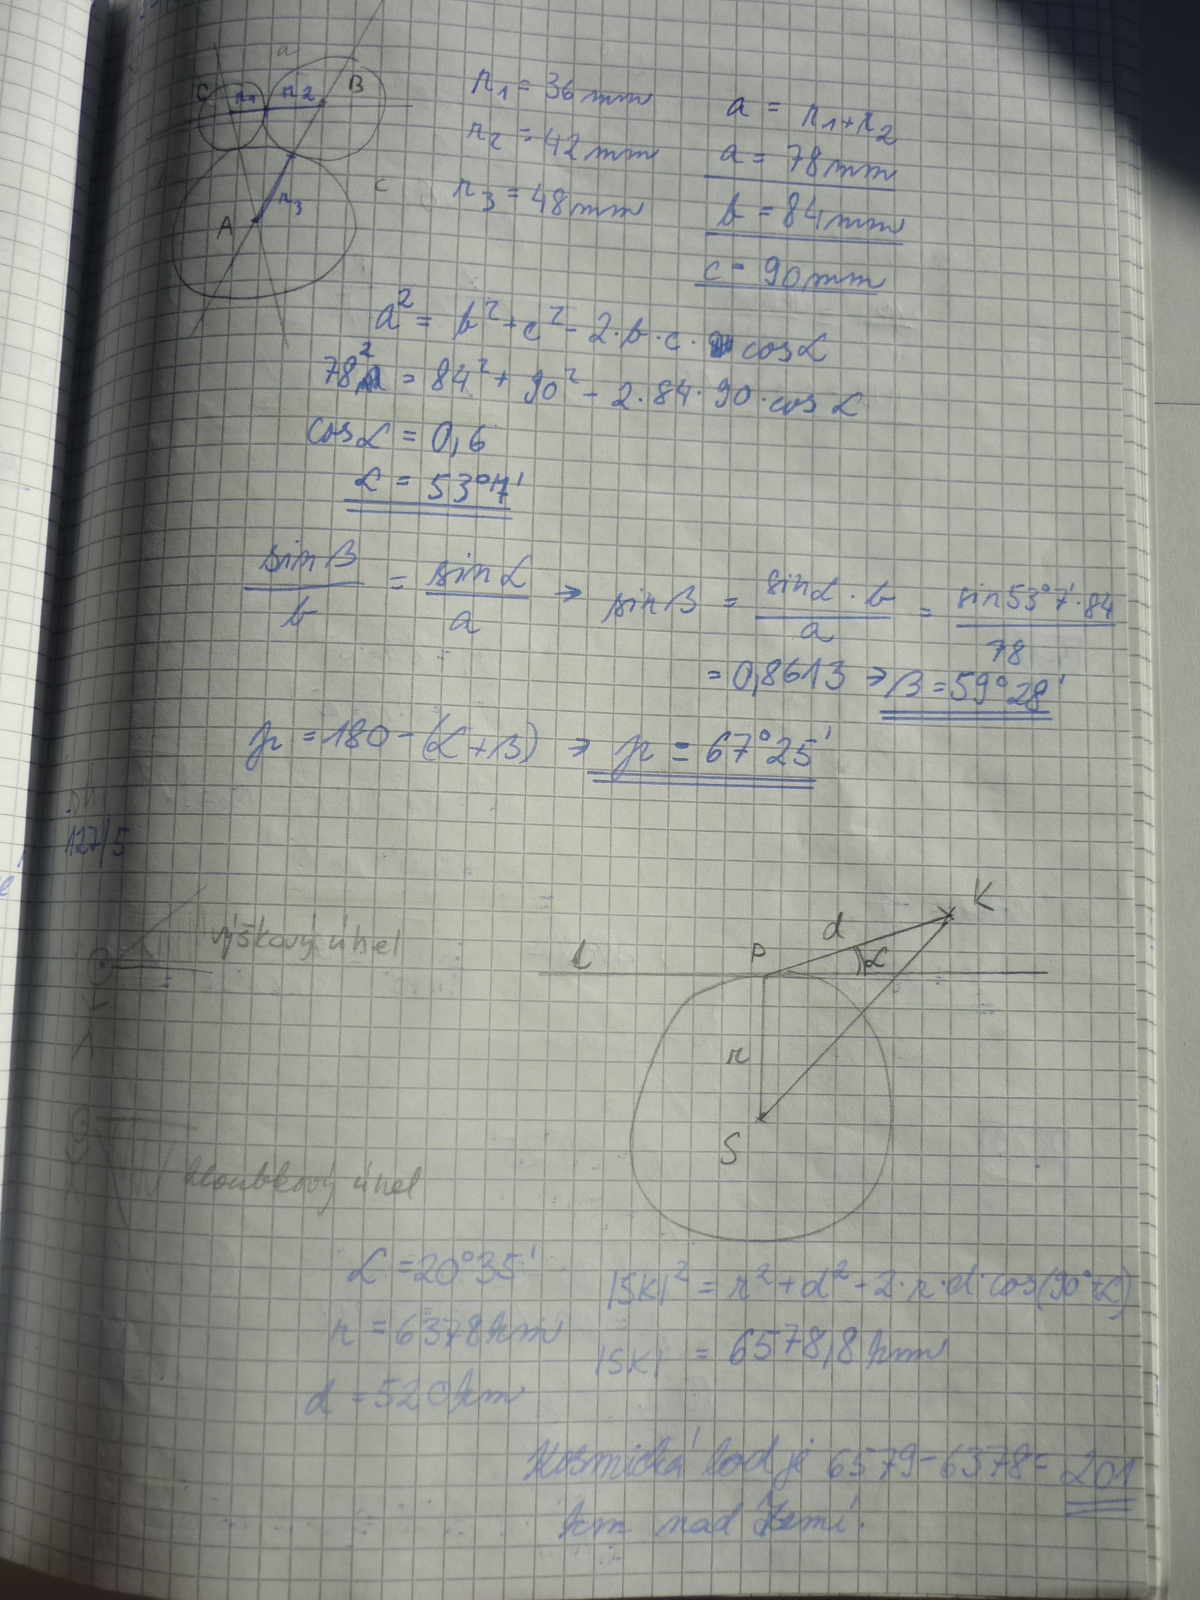 a
C r₁ r₂ B
A r₃ c
r₁ = 36 mm
r₂ = 42 mm
r₃ = 48 mm
a = r₁+r₂
a = 78 mm
b = 84 mm
c = 90 mm
a² = b² + c² - 2·b·c· cos α
78² = 84² + 90² - 2·84·90·cos α
cos α = 0,6
α = 53°7'
sin β / b = sin α / a → sin β = sin α · b / a = sin 53°7' · 84 / 78
= 0,8613 → β = 59°28'
γ = 180 - (α+β) → γ = 67°25'
DÚ
127/5
výškový úhel
hloubkový úhel
K
d
P α
r
S
α = 20°35'
r = 6378 km
d = 520 km
|SK|² = r² + d² - 2·r·d·cos(90°+α)
|SK| = 6578,8 km
Kosmická loď je 6579-6378= 201
km nad Zemí.